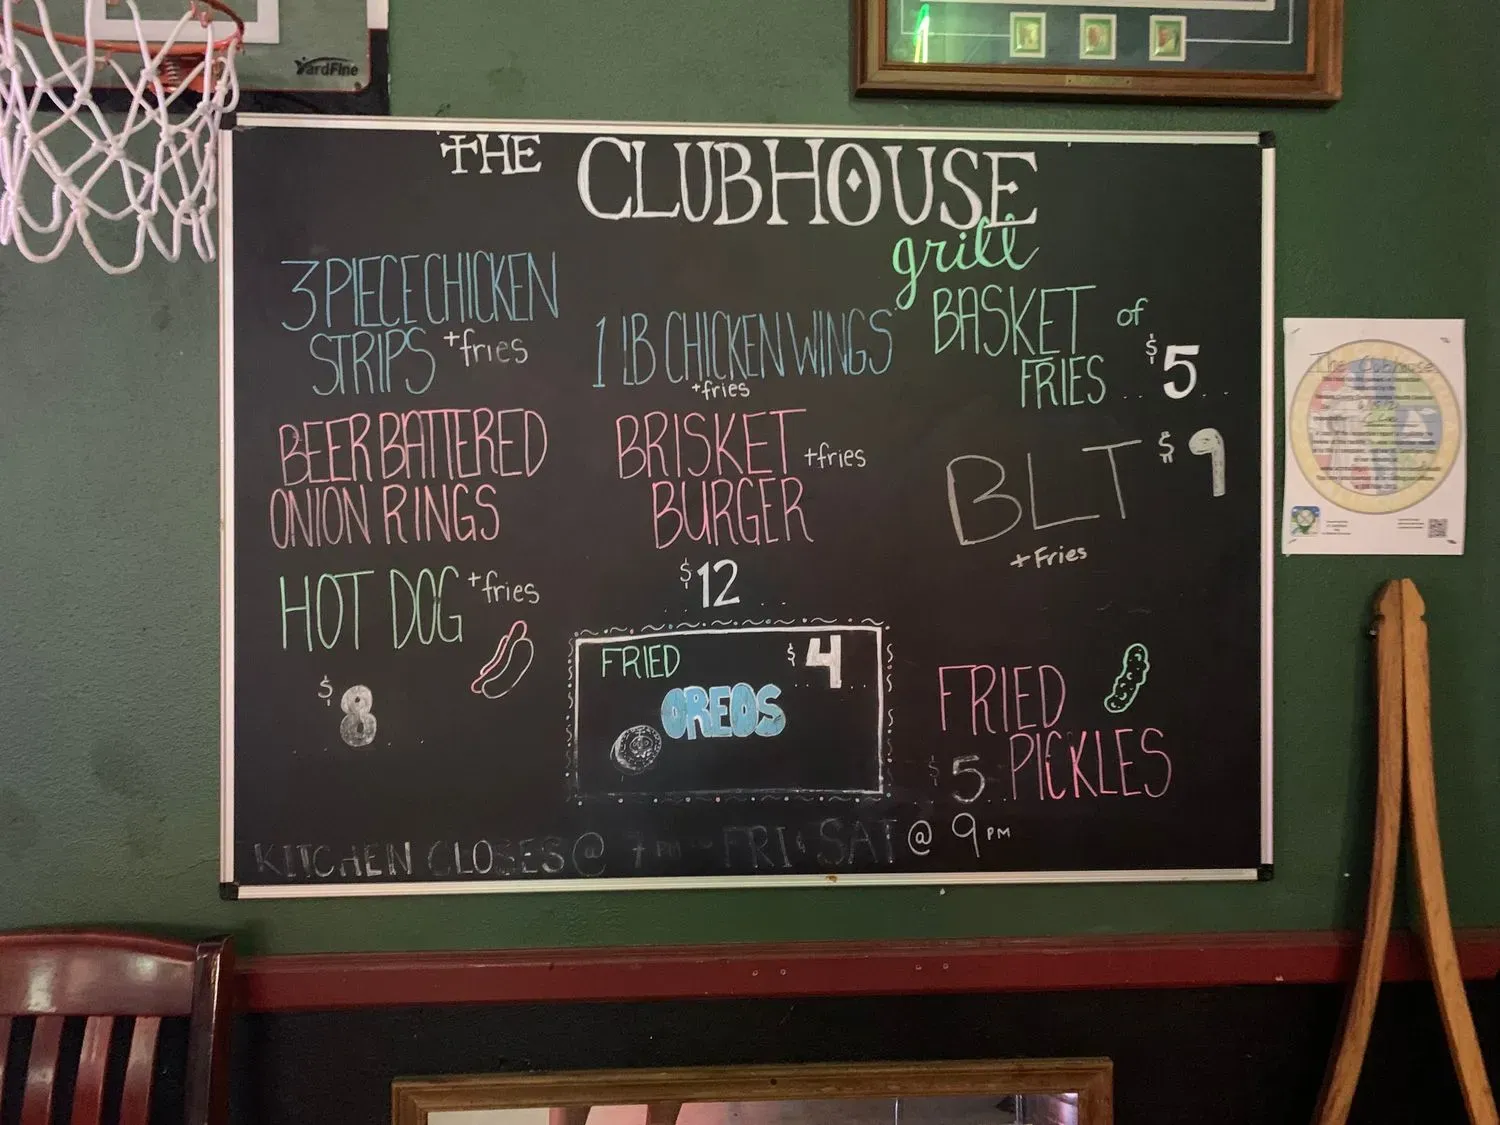 YardFine
THE CLUBHOUSE
grill
3 PIECE CHICKEN
STRIPS +fries
1 LB CHICKEN WINGS
+fries
BASKET of
FRIES $5
BEER BATTERED
ONION RINGS
BRISKET +fries
BURGER
$12
BLT $9
+ Fries
HOT DOG +fries
$8
FRIED $4
OREOS
FRIED
$5 PICKLES
KITCHEN CLOSES @ 7PM FRI & SAT @ 9 PM
The Clubhouse